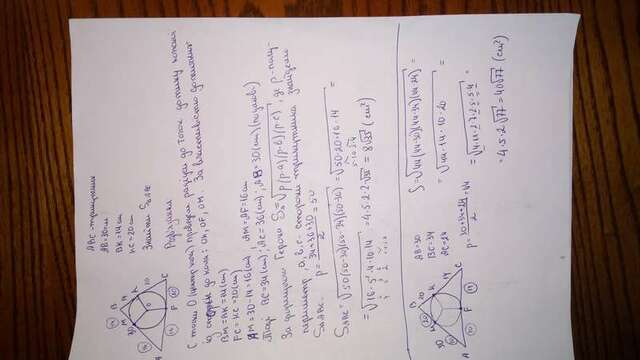 ABC - трикутник
AB=30см
BK=14см
KC=20см
Знайти S△ABC
Розв'язання
З точки O (центр кола) провели радіуси до точок дотику кожної
із сторін до кола: OK, OF, OM. За властивістю дотичних
BM=BK=14(см)
FC=KC=20(см)
AM=30-14=16(см), AM=AF=16см
Тоді BC=34(см); AC=36(см); AB=30(см) (по умові)
За формулою Герона S△=√p(p-a)(p-b)(p-c), де p-пів-
периметр, a, b, c - сторони трикутника знайдемо
S△ABC. p=34+36+30/2=50
S△ABC=√50(50-30)(50-34)(50-36)=√50·20·16·14=
=4·5·2·2√35=8√35 (см²)
M
B
K
O
A
F
C
AB=30
BC=34
AC=24
p=30+34+24/2=44
S=√44(44-30)(44-34)(44-24)=
=√44·14·10·20=
=√4·11·2·7·2·5·5·4=
=4·5·2√77=40√77 (см²)
B
20
20
M
K
30
10
14
A
10
F
14
C